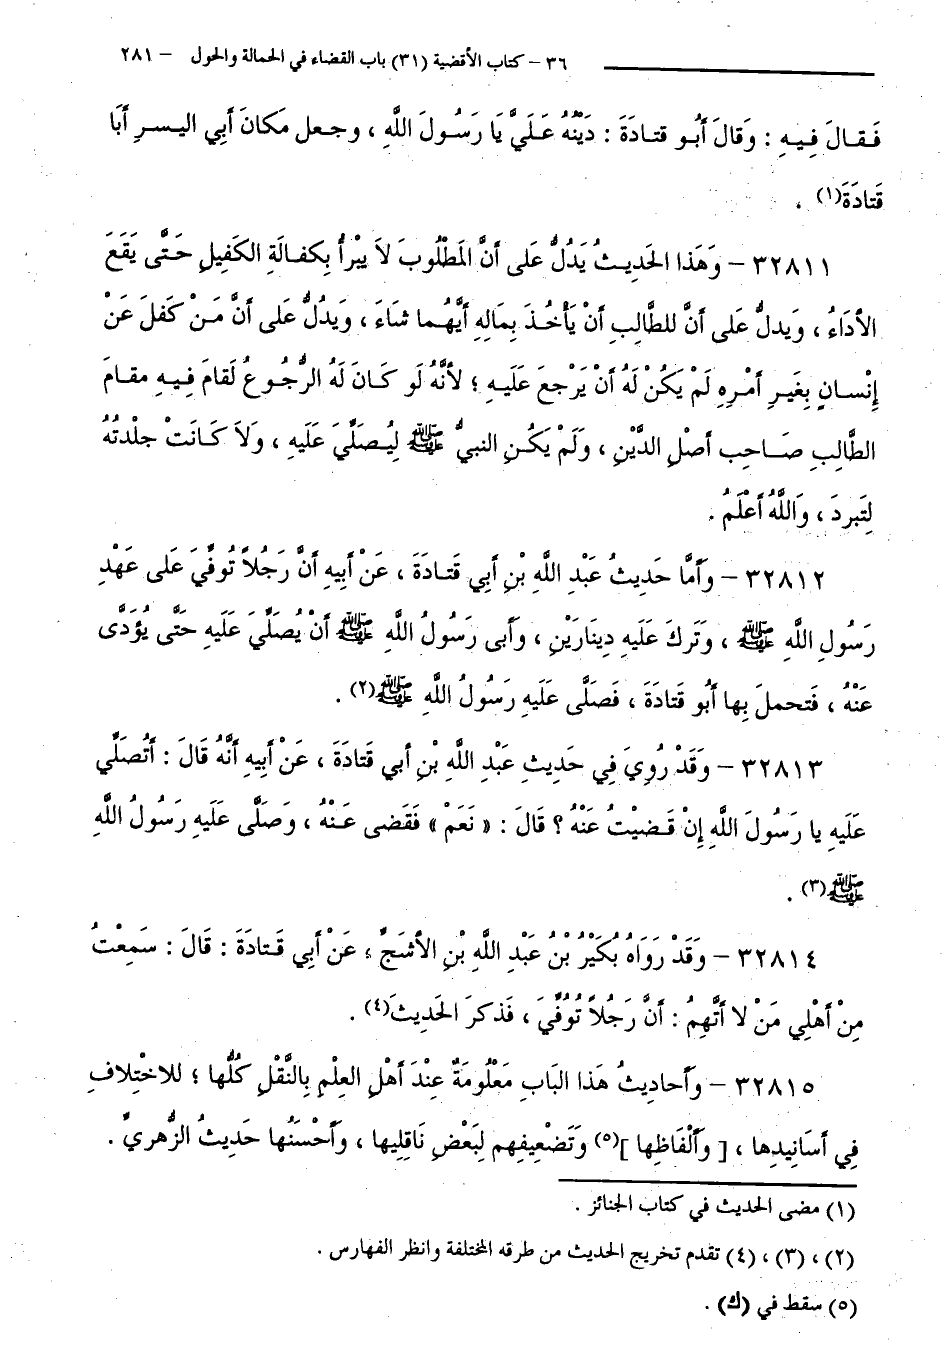 ٣٦ – كتاب الأقضية (٣١) باب القضاء في الحمالة والحول – ٢٨١
فَقالَ فِيهِ : وَقالَ أَبُو قتادَةَ : دَيْنُهُ عَلَيَّ يَا رَسُولَ اللَّهِ ، وجعل مَكانَ أبي اليسرِ أَبَا
قَتادَةَ(١) .
٣٢٨١١ – وَهَذا الحَديثُ يَدُلُّ عَلى أَنَّ المَطْلُوبَ لاَ يَبْرأُ بِكفالَةِ الكَفيلِ حَتَّى يَقَعَ
الأدَاءُ ، وَيَدلُّ عَلى أَنَّ للطَّالِبِ أَنْ يَأْخُذَ بِمَالِهِ أَيَّهُما شَاءَ ، وَيدُلُّ عَلى أَنَّ مَنْ كَفلَ عَنْ
إِنْسانٍ بِغَيرِ أَمْرِهِ لَمْ يَكُنْ لَهُ أَنْ يَرْجعَ عَلَيهِ ؛ لأنَّهُ لَو كَانَ لَهُ الرُّجُوعُ لَقامَ فِيهِ مقامَ
الطَّالِبِ صَاحِب أَصْلِ الدَّيْنِ ، وَلَمْ يَكُنِ النبيُّ ﷺ لِيُصَلِّيَ عَلَيهِ ، وَلاَ كَانَتْ جلْدتُهُ
لِتَبردَ ، وَاللَّهُ أَعْلَمُ .
٣٢٨١٢ – وَأَمَّا حَديثُ عَبْدِ اللَّهِ بْنِ أَبي قَتادَةَ ، عَنْ أَبيهِ أَنَّ رَجُلاً تُوفِّيَ عَلى عَهْدِ
رَسُولِ اللَّهِ ﷺ ، وَتَركَ عَلَيهِ دِينَارَيْنِ ، وَأَبى رَسُولُ اللهِ ﷺ أَنْ يُصَلِّيَ عَلَيهِ حَتَّى يُؤَدَّى
عَنْهُ ، فَتحملَ بِها أَبُو قَتادَةَ ، فَصَلَّى عَلَيهِ رَسُولُ اللَّهِ ﷺ(٢) .
٣٢٨١٣ – وَقَدْ رُوِيَ فِي حَديثِ عبدِ اللَّهِ بْنِ أَبي قَتادَةَ ، عَنْ أَبيهِ أَنَّهُ قَالَ : أَتُصَلِّي
عَلَيهِ يا رَسُولَ اللَّهِ إِنْ قَضيْتُ عَنْهُ ؟ قالَ : « نَعَمْ » فَقَضى عَنْهُ ، وَصَلَّى عَلَيهِ رَسُولُ اللَّهِ
ﷺ(٣) .
٣٢٨١٤ – وَقَدْ رَوَاهُ بُكَيْرُ بْنُ عَبْدِ اللَّهِ بْنِ الأَشَجِّ ، عَنْ أَبِي قَتادَةَ : قَالَ : سَمِعْتُ
مِنْ أَهْلِي مَنْ لا أَتَّهِمُ : أَنَّ رَجُلاً تُوُفِّيَ ، فَذكرَ الحَديثَ(٤) .
٣٢٨١٥ – وَأَحاديثُ هَذا البَابِ مَعْلُومَةٌ عِنْدَ أَهْلِ العِلْمِ بِالنَّقْلِ كُلُّها ؛ للاخْتِلافِ
فِي أَسَانِيدِها ، [ وَأَلْفَاظِها ](٥) وَتَضْعِيفِهم لِبَعْضِ نَاقِلِيها ، وَأَحْسَنُها حَديثُ الزُّهْرِيِّ .
(١) مضى الحديث في كتاب الجنائز .
(٢) ، (٣) ، (٤) تقدم تخريج الحديث من طرقه المختلفة وانظر الفهارس .
(٥) سقط في (ك) .